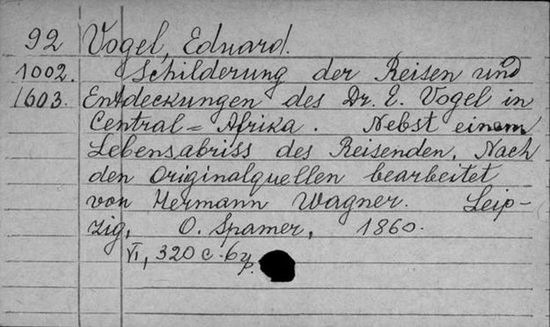 92 Vogel, Eduard.
1002. Schilderung der Reisen und
1603. Entdeckungen des Dr. E. Vogel in
Central=Afrika. Nebst einem
Lebensabriss des Reisenden. Nach
den Originalquellen bearbeitet
von Hermann Wagner. Leip-
zig, O. Spamer, 1860.
VI, 320 c.